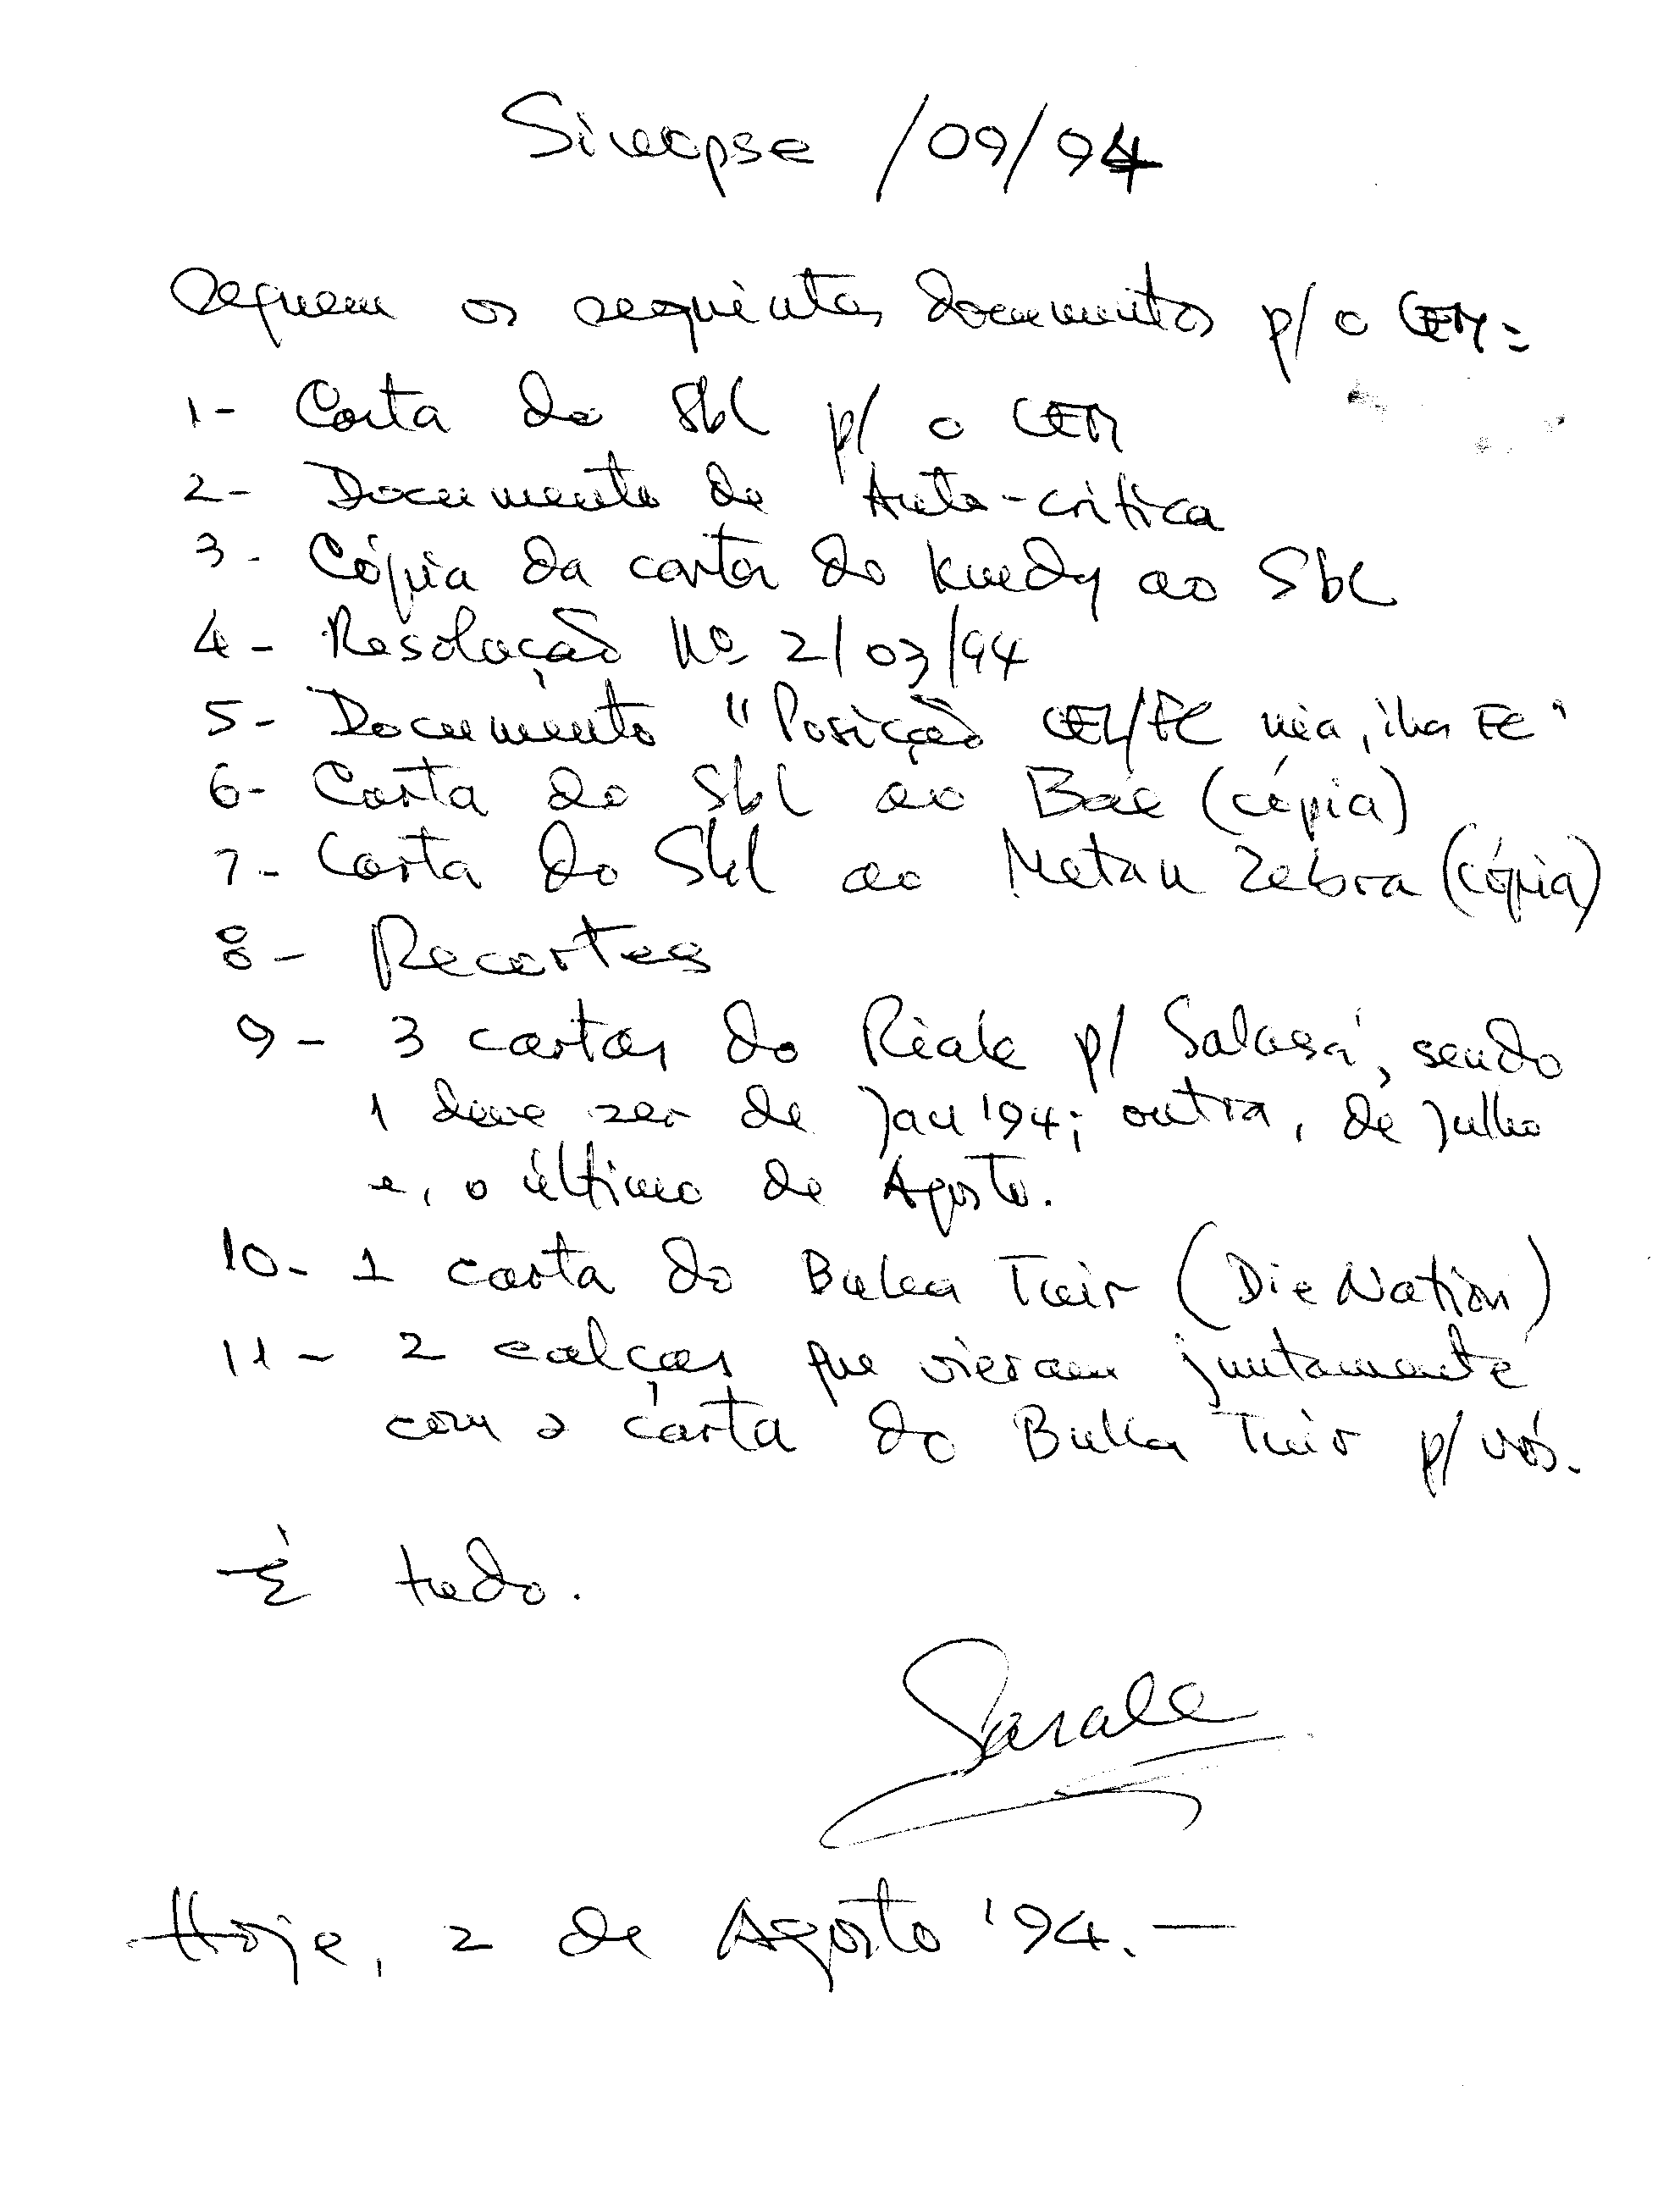 Sinopse /09/94
Seguem os seguintes documentos p/ o CEM:
1- Carta do Sbl p/ o CEM
2- Documento de Auto-crítica
3- Cópia da carta do Kuedy ao Sbl
4- Resolução Nº 2/03/94
5- Documento "Posição CEL/FC nia, iha FC"
6- Carta do Sbl ao Boé (cópia)
7- Carta do Sbl ao Metan Zebra (cópia)
8- Recortes
9- 3 cartas do Riak p/ Salasá, sendo
1 deve ser de Jan '94; outra, de Julho
e, o último de Agosto.
10- 1 carta do Buka Tuir (Die Nation)
11- 2 calças que vieram juntamente
com a carta do Buka Tuir p/ vós.
É tudo.
Hoje, 2 de Agosto '94.-